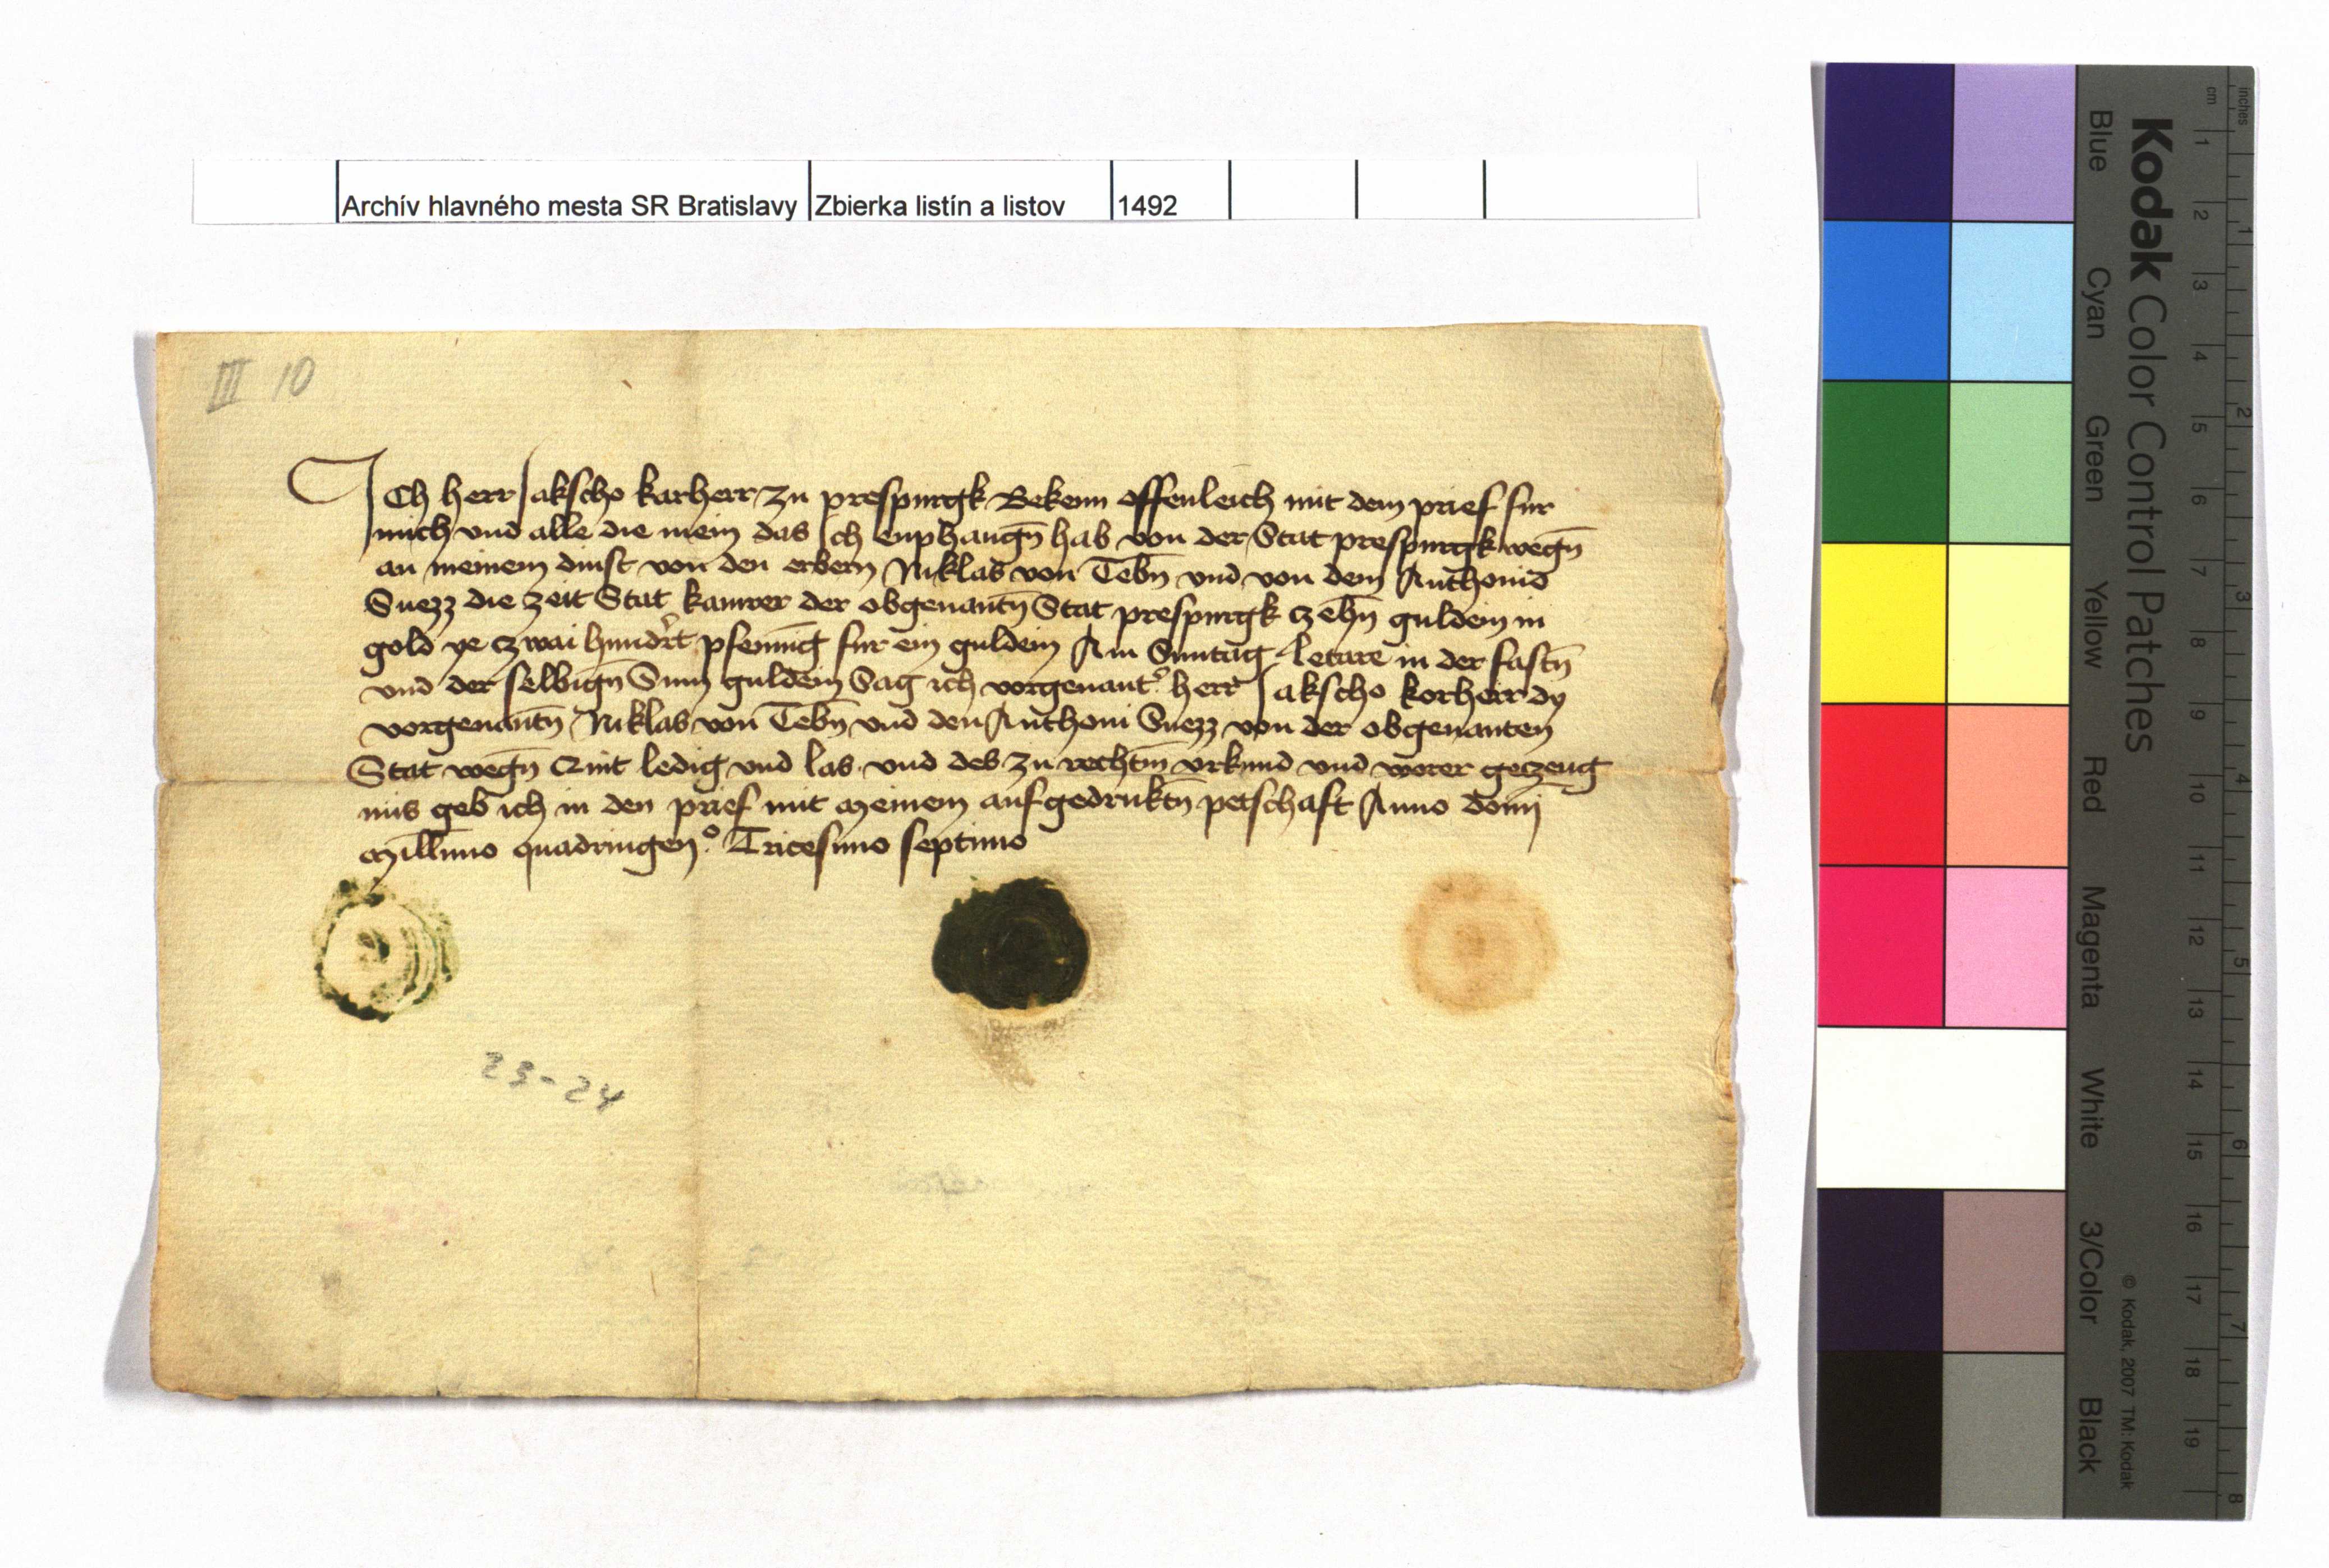 Archív hlavného mesta SR Bratislavy Zbierka listín a listov 1492
III 10
Ich herr Jakscho karherr zu prespurgk Bekenn offenleich mit dem prief fur
mich und alle die mein das Ich enphangn̄ hab von der Stat prespurgk wegn̄
an meinem dinst von den erbern Niklas von Tebn̄ und von dem Anthonio
Suezz die zeit Stat kamrer der obgenantn̄ Stat prespurgk czehn̄ guldein in
gold ye czwai hundrt pfennīg fur ein guldein Am Suntag letare in der fastn̄
und der selbign̄ Sum guldein Sag ich vorgenantr herr Jakscho korherr dy
vorgenantn̄ Niklas von Tebn̄ und den Anthoni Suezz von der obgenanten
Stat wegn̄ Quit ledig und las und des zu rechtm̄ urkund und worer geczeug
nus geb ich in den prief mit meinem aufgedruktn̄ petschaft Anno domī
millimo quadringen.o Tricesimo septimo
23-24
Kodak Color Control Patches
Blue Cyan Green Yellow Red Magenta White 3/Color Black
© Kodak, 2007 TM: Kodak
cm 1 2 3 4 5 6 7 8 9 10 11 12 13 14 15 16 17 18 19
inches 1 2 3 4 5 6 7 8